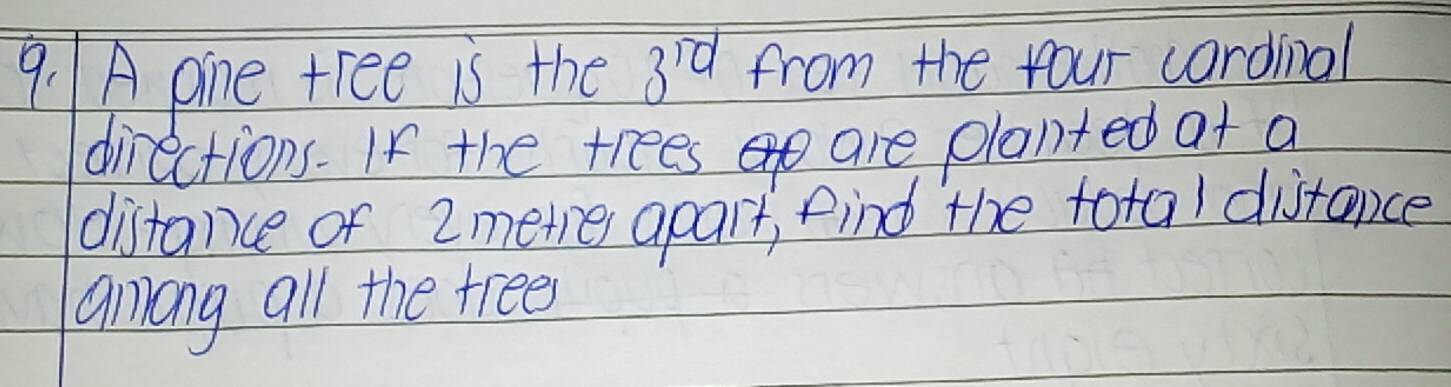 9. A pine tree is the 3rd from the four cardinal
directions. If the trees are planted at a
distance of 2 metres apart, find the total distance
among all the trees